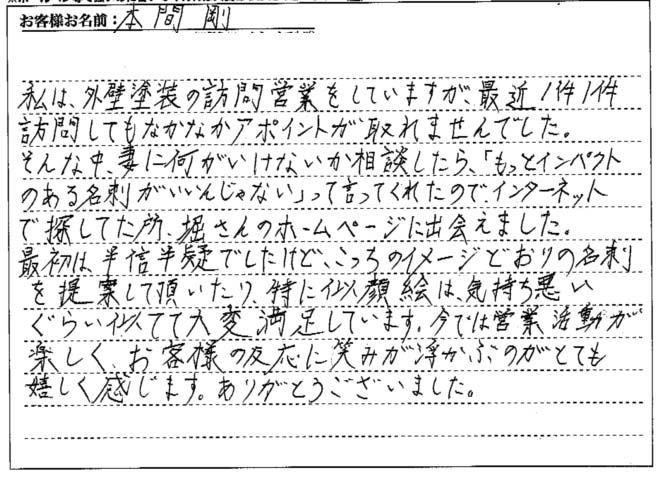 お客様お名前：本間 剛
私は、外壁塗装の訪問営業をしていますが、最近1件1件
訪問してもなかなかアポイントが取れませんでした。
そんな中、妻に何がいけないか相談したら、「もっとインパクト
のある名刺がいいんじゃない」って言ってくれたので、インターネット
で探してた所、堀さんのホームページに出会えました。
最初は半信半疑でしたけど、こっちのイメージどおりの名刺
を提案して頂いたり、特に似顔絵は、気持ち悪い
ぐらい似てて大変満足しています。今では営業活動が
楽しく、お客様の反応に笑みが浮かぶのがとても
嬉しく感じます。ありがとうございました。